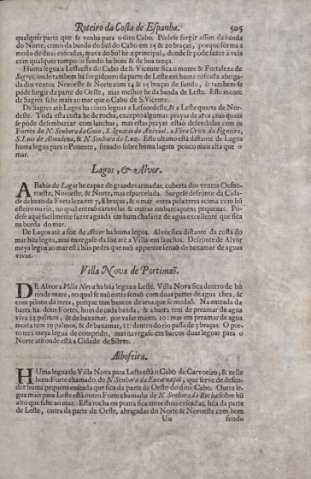 Roteiro da Costa de Espanha. 505
qualquer parte que se venha para o dito Cabo. Podese surgir assim da banda
do Norte, como da banda do Sul do Cabo em 25 & 20 braças, porque forma a
modo de duas enseadas, mas a do Sul he a principal, donde se pode fazer à vela
com qualquer tempo: o fundo he bom & de boa tença.
Huma legua a Lessueste do Cabo de S. Vicente fica o monte & Fortaleza de
Sagres, onde tambem ha surgidouro da parte de Leste em huma enseada abriga-
da dos ventos Noroeste & Norte em 14 & 15 braças de fundo, & tambem se
pode surgir da parte de Oeste, mas melhor he da banda de Leste. Este monte
de Sagres sahe mais ao mar que o Cabo de S. Vicente.
De Sagres até Lagos ha cinco leguas a Lesnordeste, & a Leste quarta de Nor-
deste. Toda esta costa he de rocha, excepto algumas prayas de area, nas quaes
se pode desembarcar com lanchas, mas estas prayas estaõ defendidas com os
Fortes de N. Senhora da Guia, S. Ignacio do Azeval, a Vera Cruz da Figueira,
S. Luiz de Almadena, & N. Senhora da Luz. Este ultimo está distante de Lagos
huma legua para o Ponente, situado sobre huma lagem pouco mais alta que o
mar.
Lagos, & Alvor.
A Bahia de Lagos he capaz de grandes armadas, cuberta dos ventos Oesno-
roeste, Noroeste, & Norte, mas esparcelada. Surgese defronte da Cida-
de debaixo da Fortaleza em 7, & braças, &
este no rio, no qual entraõ caravelas & outras embarcaçoens pequenas. Po-
dese aqui facilmente fazer aguada em hum chafariz de agua excellente que fica
na borda do mar.
De Lagos até a foz de Alvor ha huma legoa. Alvor fica distante da costa do
mar hũa legoa, mas navegase da foz até a Villa em lanchas. Defronte de Alvor
meya legoa ao mar está hũa pedra que naõ apparece senaõ de baxamar de aguas
vivas.
Villa Nova de Portimaõ.
DE Alvor a Villa Nova ha hũa legua a Leste. Villa Nova fica dentro de hũ
rio de mare, no qual se naõ entra senaõ com duas partes de agua chea, &
com piloto da terra, porque tem bancos de area que se mudaõ. Na entrada da
barra ha dous Fortes, hum de cada banda, & a barra tem de preamar de agua
viva 15 palmos, & de baxamar, por vazar muito, 10: mas em preamar de agua
morta tem 19 palmos, & de baxamar, 12: dentro do rio passa de 5 braças. O por-
to tera meya legua de comprido, mas navegase em barcos duas leguas para o
Norte até onde está a Cidade de Silves.
Albofeira.
HUma legua de Villa Nova para Leste está o Cabo de Carvoeiro, & nelle
hum Forte chamado de N. Senhora da Encarnaçaõ, que serve de defen-
der huma pequena enseada que fica da parte de Oeste do dito Cabo. Outra le-
gua mais para Leste está outro Forte chamado de N. Senhora da Rocha sobre hũ
alto que sahe ao mar. Esta rocha ou ponta fica entre duas enseadas, hũa da parte
de Leste, outra da parte de Oeste, abrigadas do Norte & Noroeste com bom
Uu fundo